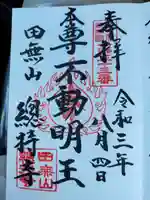 奉拝
令和三年
八月四日
本尊不動明王
田無山
總持寺